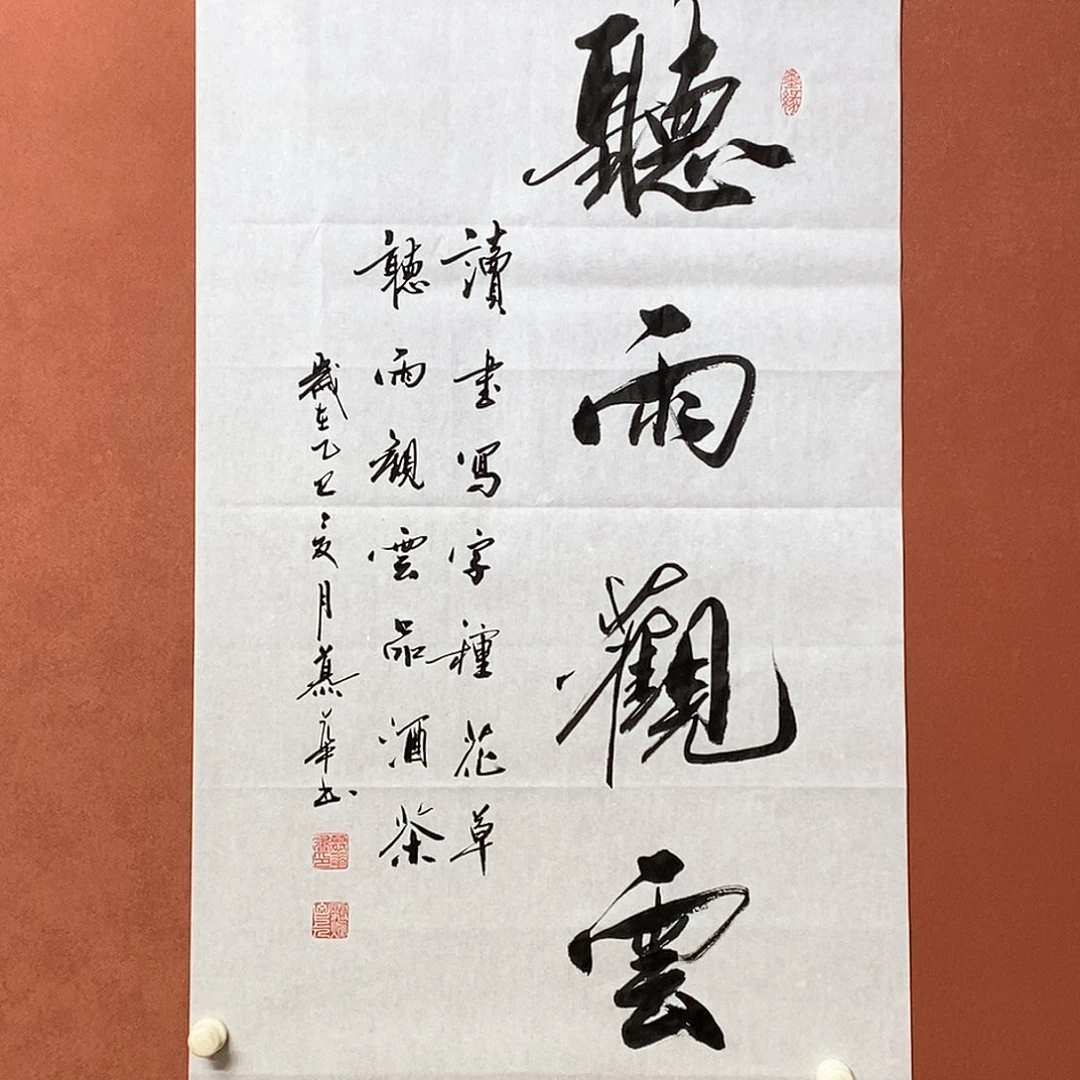 聽雨觀雲
讀書寫字種花草
聽雨觀雲品酒茶
歲在乙巳之夏月慕華书
墨缘